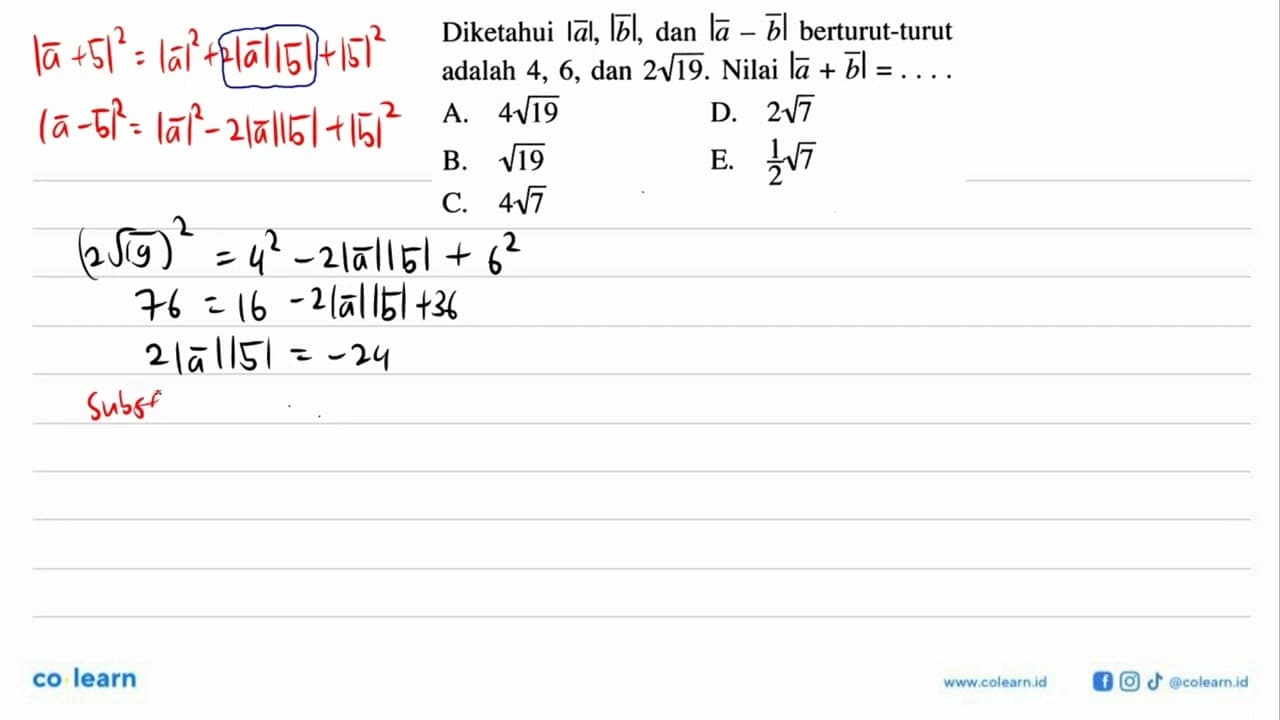 |a̅ + b̅|² = |a̅|² + 2|a̅||b̅| + |b̅|²
|a̅ - b̅|² = |a̅|² - 2|a̅||b̅| + |b̅|²
Diketahui |a̅|, |b̅|, dan |a̅ – b̅| berturut-turut
adalah 4, 6, dan 2√19. Nilai |a̅ + b̅| = . . . .
A. 4√19 D. 2√7
B. √19 E. 1/2√7
C. 4√7
(2√19)² = 4² - 2|a̅||b̅| + 6²
76 = 16 - 2|a̅||b̅| + 36
2|a̅||b̅| = -24
Subst
co learn
www.colearn.id @colearn.id